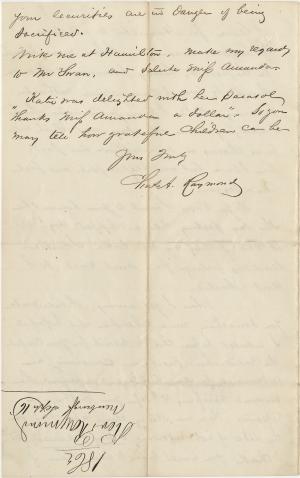 your securities are in Danger of being
sacrificed.
Write me at Hamilton, make my regards
to Mr Swan, and salute Miss Amanda.
"Katie was delighted with her Parasol
thanks Miss Amanda a dollar". So you
may tell how grateful Children can be
Yours Truly
Raymond
1862
Raymond
Sept 16